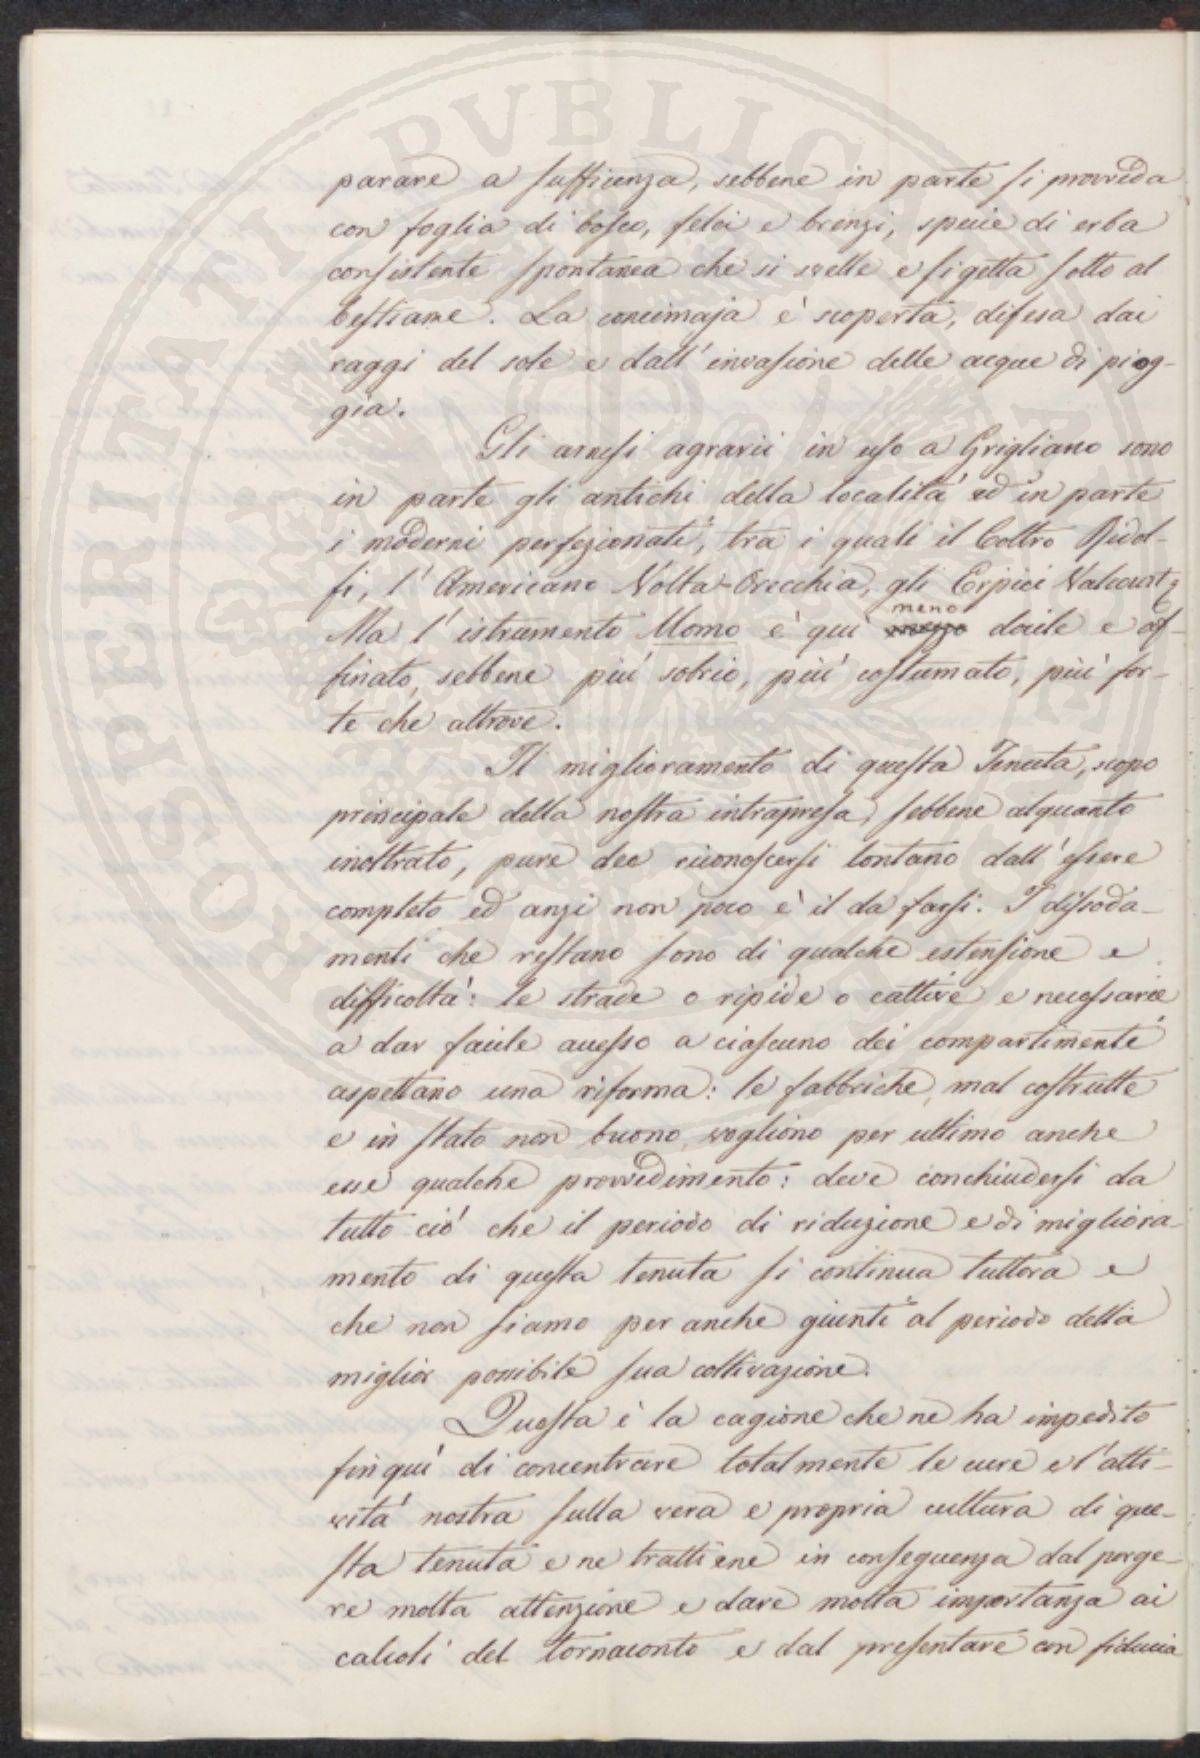 parare a sufficenza, sebbene in parte si provveda
con foglia di bosco, felci e brenzi, specie di erba
consistente spontanea che si svelle e si getta sotto al
bestiame. La concimaja è scoperta, difesa dai
raggi del sole e dall'invasione delle acque di piog-
gia.
Gli arnesi agrarii in uso a Grigliano sono
in parte gli antichi della località ed in parte
i moderni perfezionati, tra i quali il Coltro Ridol-
fi, l'Americano Volta-Orecchia, gli Erpici Valcourt
Ma l'istrumento Uomo è qui meno docile e af-
finato, sebbene più sobrio, più costumato, più for-
te che altrove.
Il miglioramento di questa Tenuta, scopo
principale della nostra intrapresa, sebbene alquanto
inoltrato, pure dee riconoscersi lontano dall'essere
completo ed anzi non poco è il da farsi. I dissoda-
menti che restano sono di qualche estensione e
difficoltà: le strade o ripide o cattive e necessarie
a dar facile accesso a ciascuno dei compartimenti
aspettano una riforma: le fabbriche, mal costrutte
e in stato non buono, vogliono per ultimo anche
esse qualche provvedimento: deve conchiudersi da
tutto ciò che il periodo di riduzione e di migliora-
mento di questa tenuta si continua tuttora e
che non siamo per anche giunti al periodo della
miglior possibile sua coltivazione.
Questa è la cagione che ne ha impedito
fin quì di concentrare totalmente le cure e l'atti-
vità nostra sulla vera e propria cultura di que-
sta tenuta e ne trattiene in conseguenza dal porge-
re molta attenzione e dare molta importanza ai
calcoli del tornaconto e dal presentare con fiducia
PROSPERITATI PVBLICAE